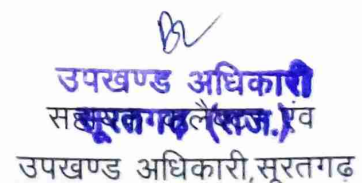 उपखण्ड अधिकारी
सूरतगढ़ (राज.)
एंव
उपखण्ड अधिकारी,सूरतगढ़